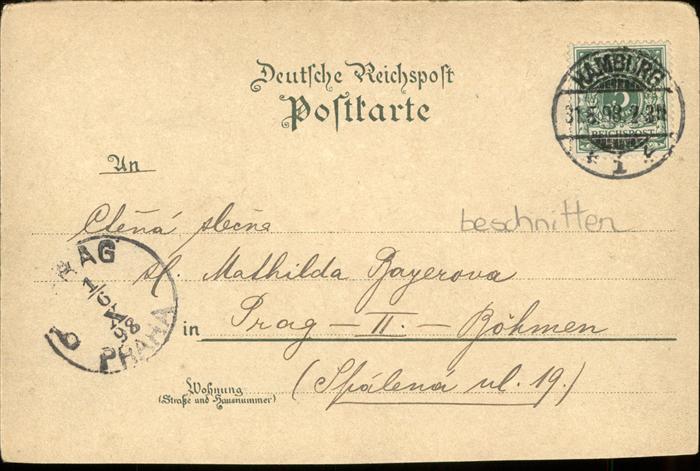 Deutsche Reichspost
Postkarte
HAMBURG
31.5.98.
1
5
REICHSPOST
An
Ctěná slečna
beschnitten
sl. Mathilda Bayerova
in Prag – II. – Böhmen
(Spálená ul. 19.)
Wohnung
(Straße und Hausnummer)
PRAG
1/6
X
98
PRAHA